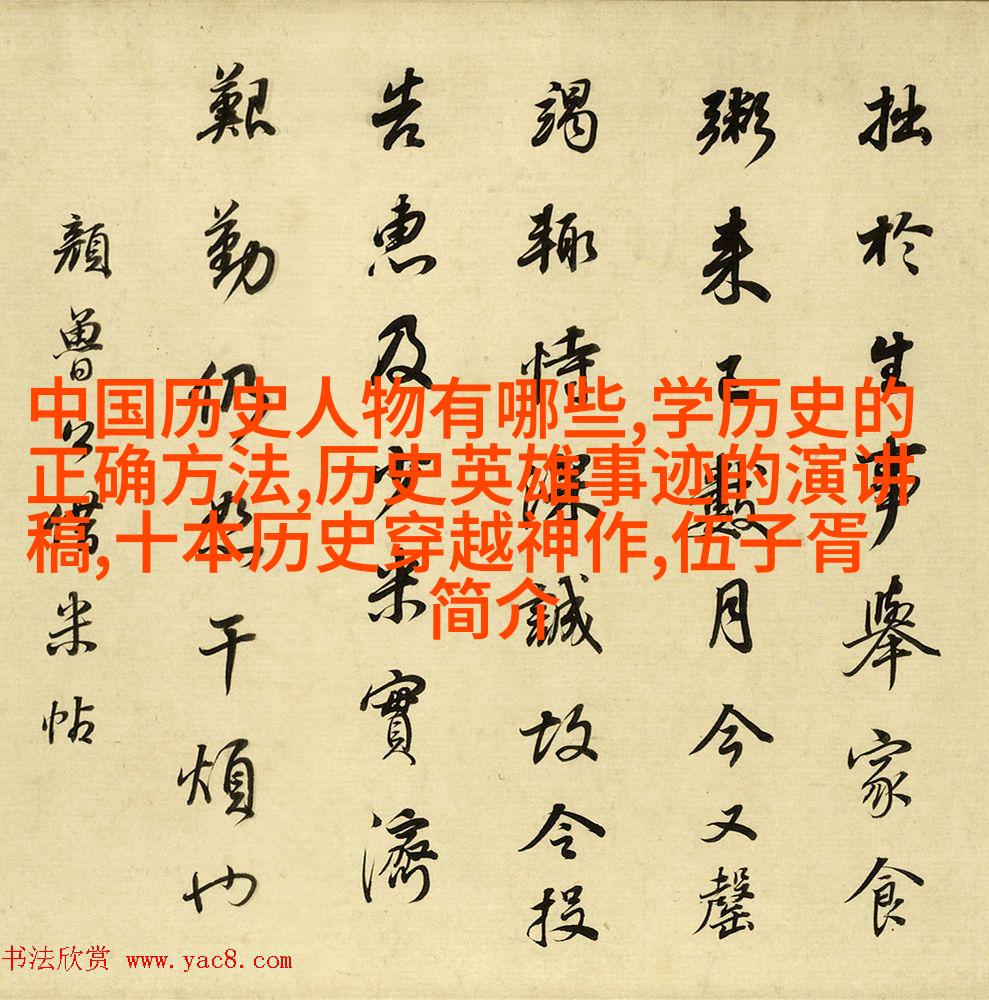 拙於生事舉家食
粥来已數月今又罄
竭輒恃深誠故令投
告惠及少米實濟
艱勤仍恕干煩也
顏魯公借米帖
中国历史人物有哪些,学历史的
正确方法,历史英雄事迹的演讲
稿,十本历史穿越神作,伍子胥
简介
书法欣赏 www.yac8.com